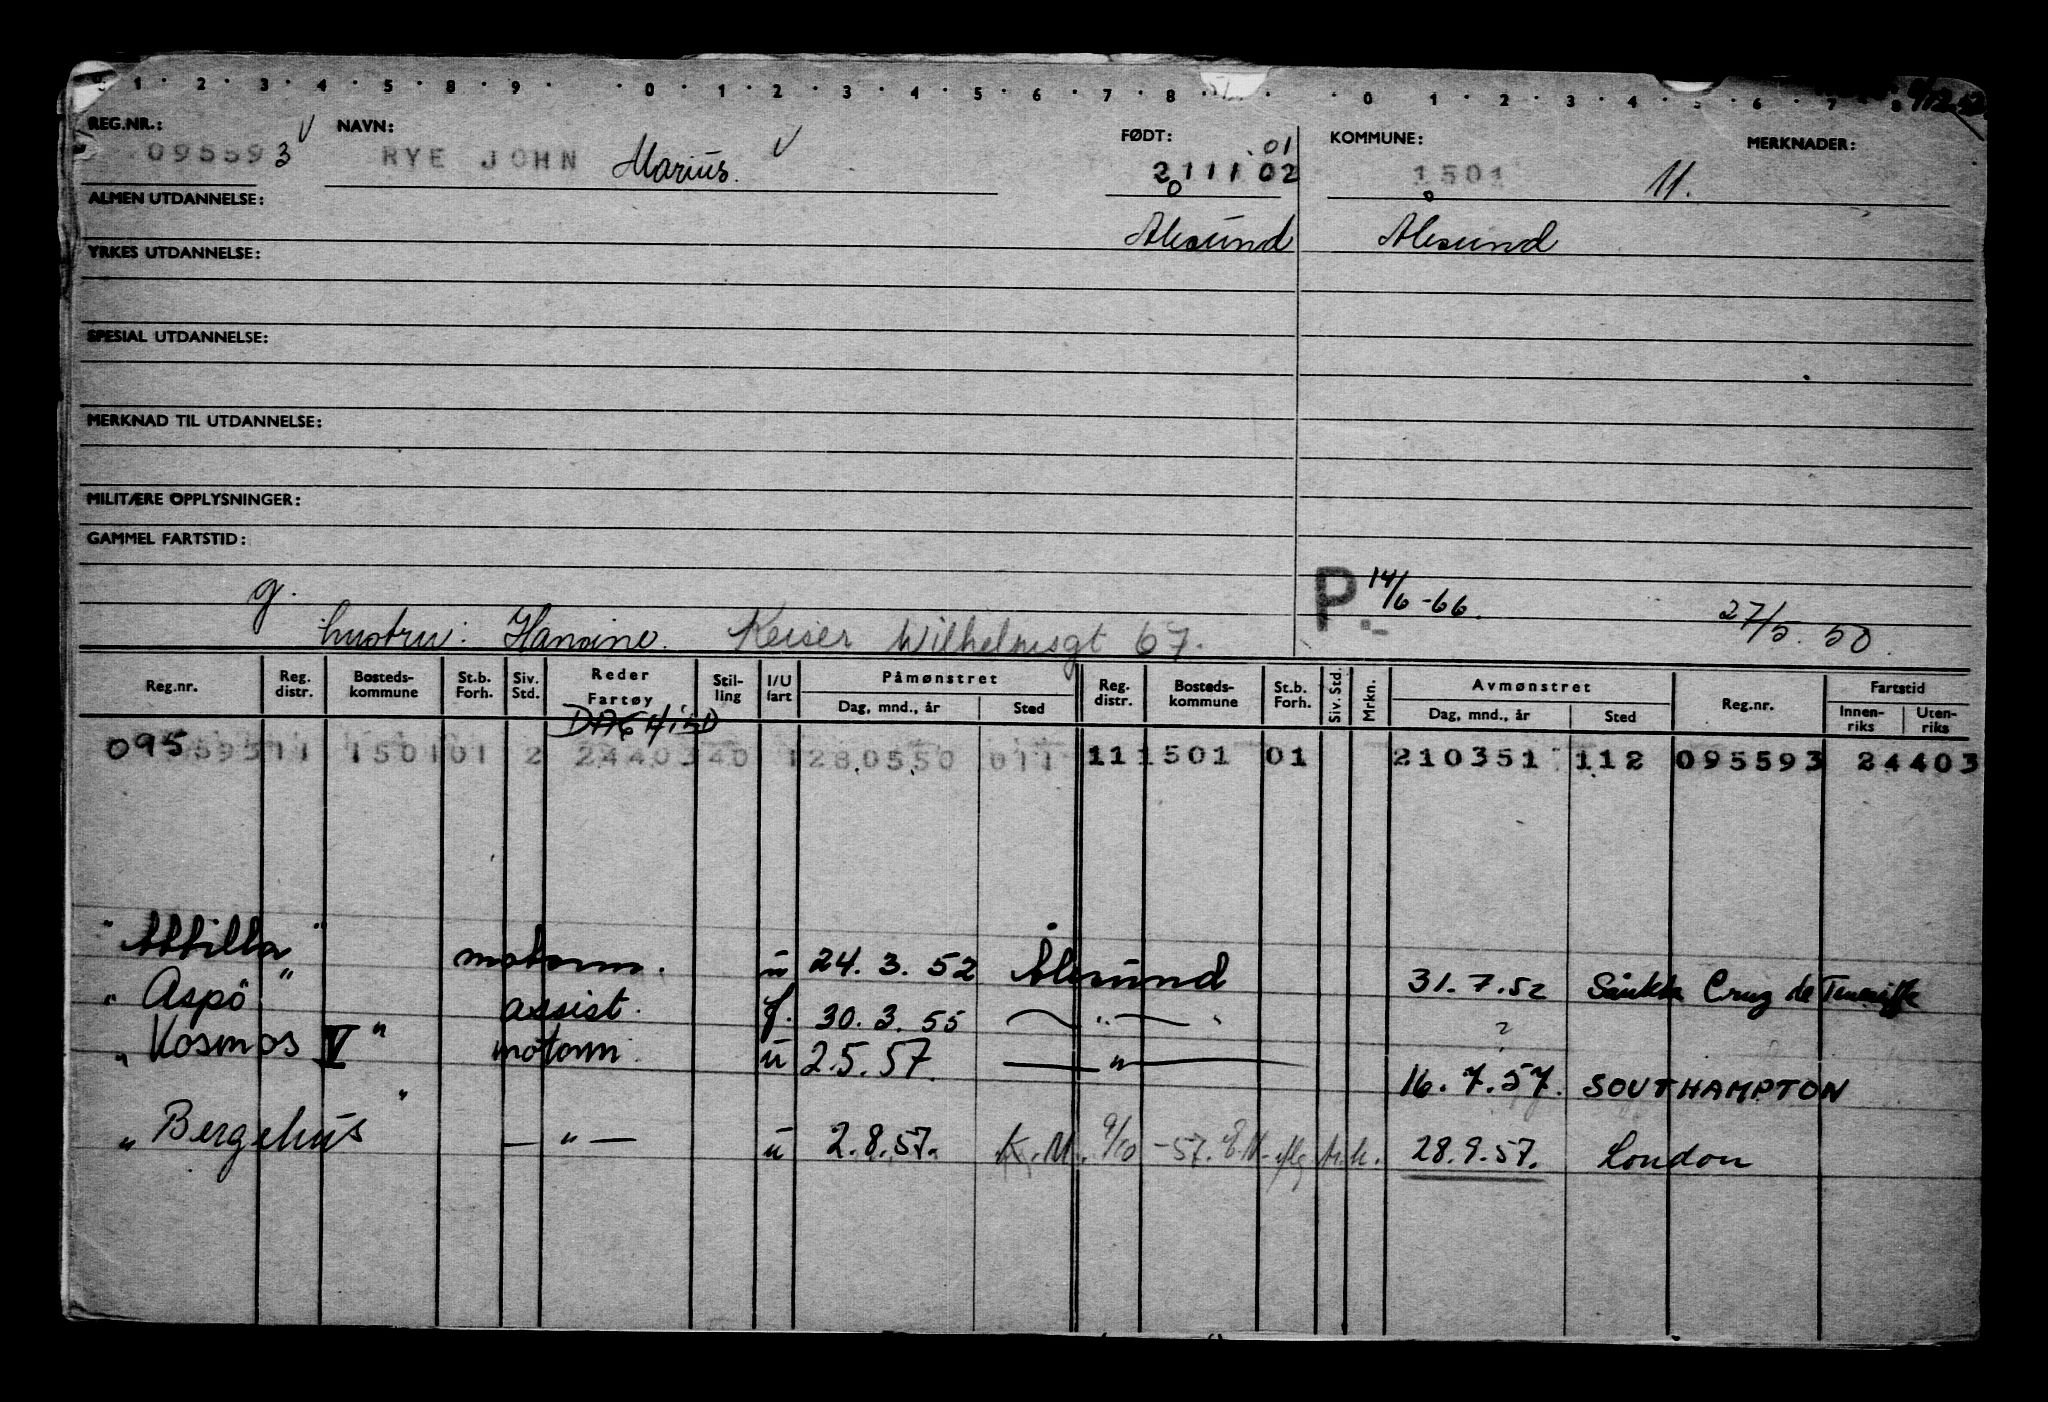 1 2 3 4 5 8 9 0 1 2 3 4 5 6 7 8 0 1 2 3 4 5 6 7 8
REG.NR.: NAVN: FØDT: KOMMUNE: MERKNADER:
01
095593 RYE JOHN Marius. 211102 1501 M.
ALMEN UTDANNELSE:
Ålesund Ålesund
YRKES UTDANNELSE:
SPESIAL UTDANNELSE:
MERKNAD TIL UTDANNELSE:
MILITÆRE OPPLYSNINGER:
GAMMEL FARTSTID:
g. P 14/6-66. 27/5. 50.
hustru: Hansine. Keiser Wilhelmsgt 67.
Reg.nr. Reg. distr. Bosteds-kommune St.b. Forh. Siv. Std. Reder Fartøy Stil-ling I/U fart Påmønstret Dag, mnd., år Sted Reg. distr. Bosteds-kommune St.b. Forh. Siv. Std. Mrkn. Avmønstret Dag, mnd., år Sted Reg.nr. Fartstid Innen-riks Uten-riks
095 59311 150101 2 2440340 1280550 011 11 1501 01 210351 112 095593 24403
"Attilla" motorm. u 24. 3. 52 Ålesund 31. 7. 52 Cruz de Teneriffe
"Aspö" assist. f. 30. 3. 55 — " — ?
"Kosmos V" motorm. u 2.5.57. — " — 16. 7. 57. SOUTHAMPTON
"Bergehus" — " — u 2.8.57. K.M. 9/10 -57. 28.9.57. London